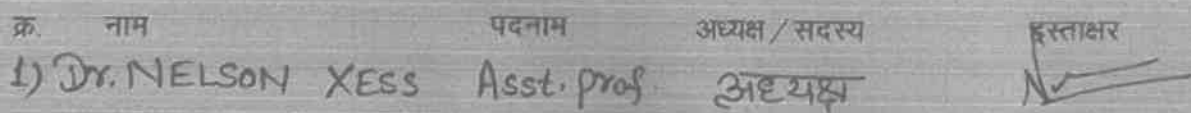 क्र. नाम पदनाम अध्यक्ष / सदस्य हस्ताक्षर
1) Dr. NELSON XESS Asst. Prof. अध्यक्ष